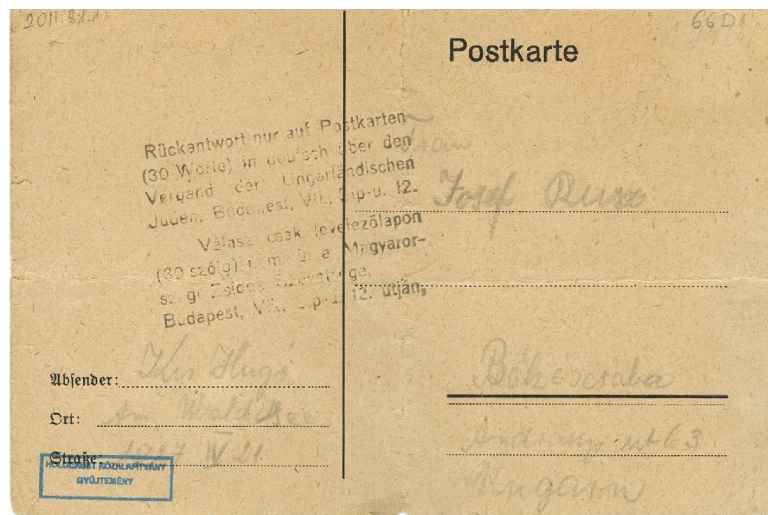 2011.
66
Postkarte
Rückantwort nur auf Postkarten
(30 Worte) in deutsch über den
Verband der Ungarländischen
Juden, Budapest, VII., Sip-u. 12.
Válasz csak levelezőlapon
(30 szóig) a Magyaror-
Budapest, VII., Sip-u. 12. utján,
Frau
Josef
Békéscsaba
Andrássy ut 63
Ungarn
Absender: Kis Hugó
Ort: Am Waldsee
Straße: 1927 IV 21
HOLOCAUST KÖZALAPÍTVÁNY
GYŰJTEMÉNY